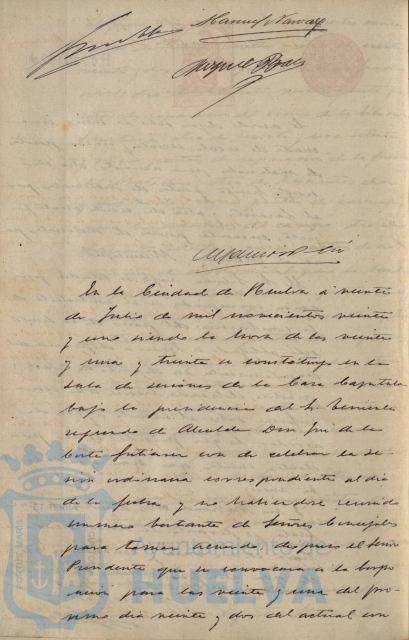 Manuel Narvaez
Miguel
En la Ciudad de Huelva á veinte
de Julio de mil novecientos veinte
y uno siendo la hora de las veinte
y una y treinta se constituyó en la
sala de sesiones de la Casa Capitular
bajo la presidencia del Sr. Teniente
segundo de Alcalde Don José de la
Corte Gutierrez con de celebrar la se-
sion ordinaria correspondiente al dia
de la fecha y no habiendose reunido
numero bastante de Señores Concejales
para tomar acuerdos dispuso el Señor
Presidente que se convocara á la Corpo
racion para las veinte y una del pro-
ximo dia veinte y dos del actual con
Ayuntamiento de
HUELVA